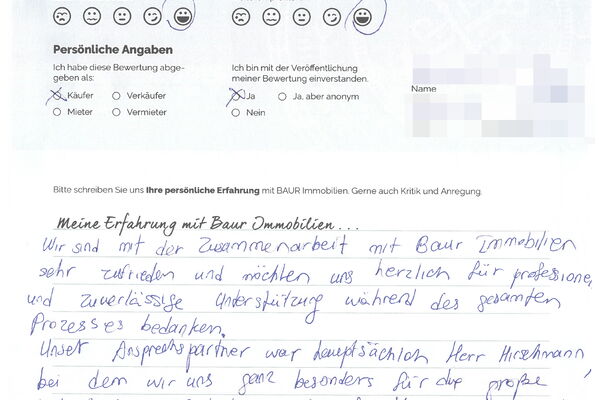 Persönliche Angaben
Ich habe diese Bewertung abge-
geben als:
Käufer
Verkäufer
Mieter
Vermieter
Ich bin mit der Veröffentlichung
meiner Bewertung einverstanden.
Ja
Ja, aber anonym
Nein
Name
Bitte schreiben Sie uns Ihre persönliche Erfahrung mit BAUR Immobilien. Gerne auch Kritik und Anregung.
Meine Erfahrung mit Baur Immobilien...
Wir sind mit der Zusammenarbeit mit Baur Immobilien
sehr zufrieden und möchten uns herzlich für professione
und zuverlässige Unterstützung während des gesamten
Prozesses bedanken.
Unser Ansprechspartner war hauptsächlich Herr Hirschmann,
bei dem wir uns ganz besonders für die große